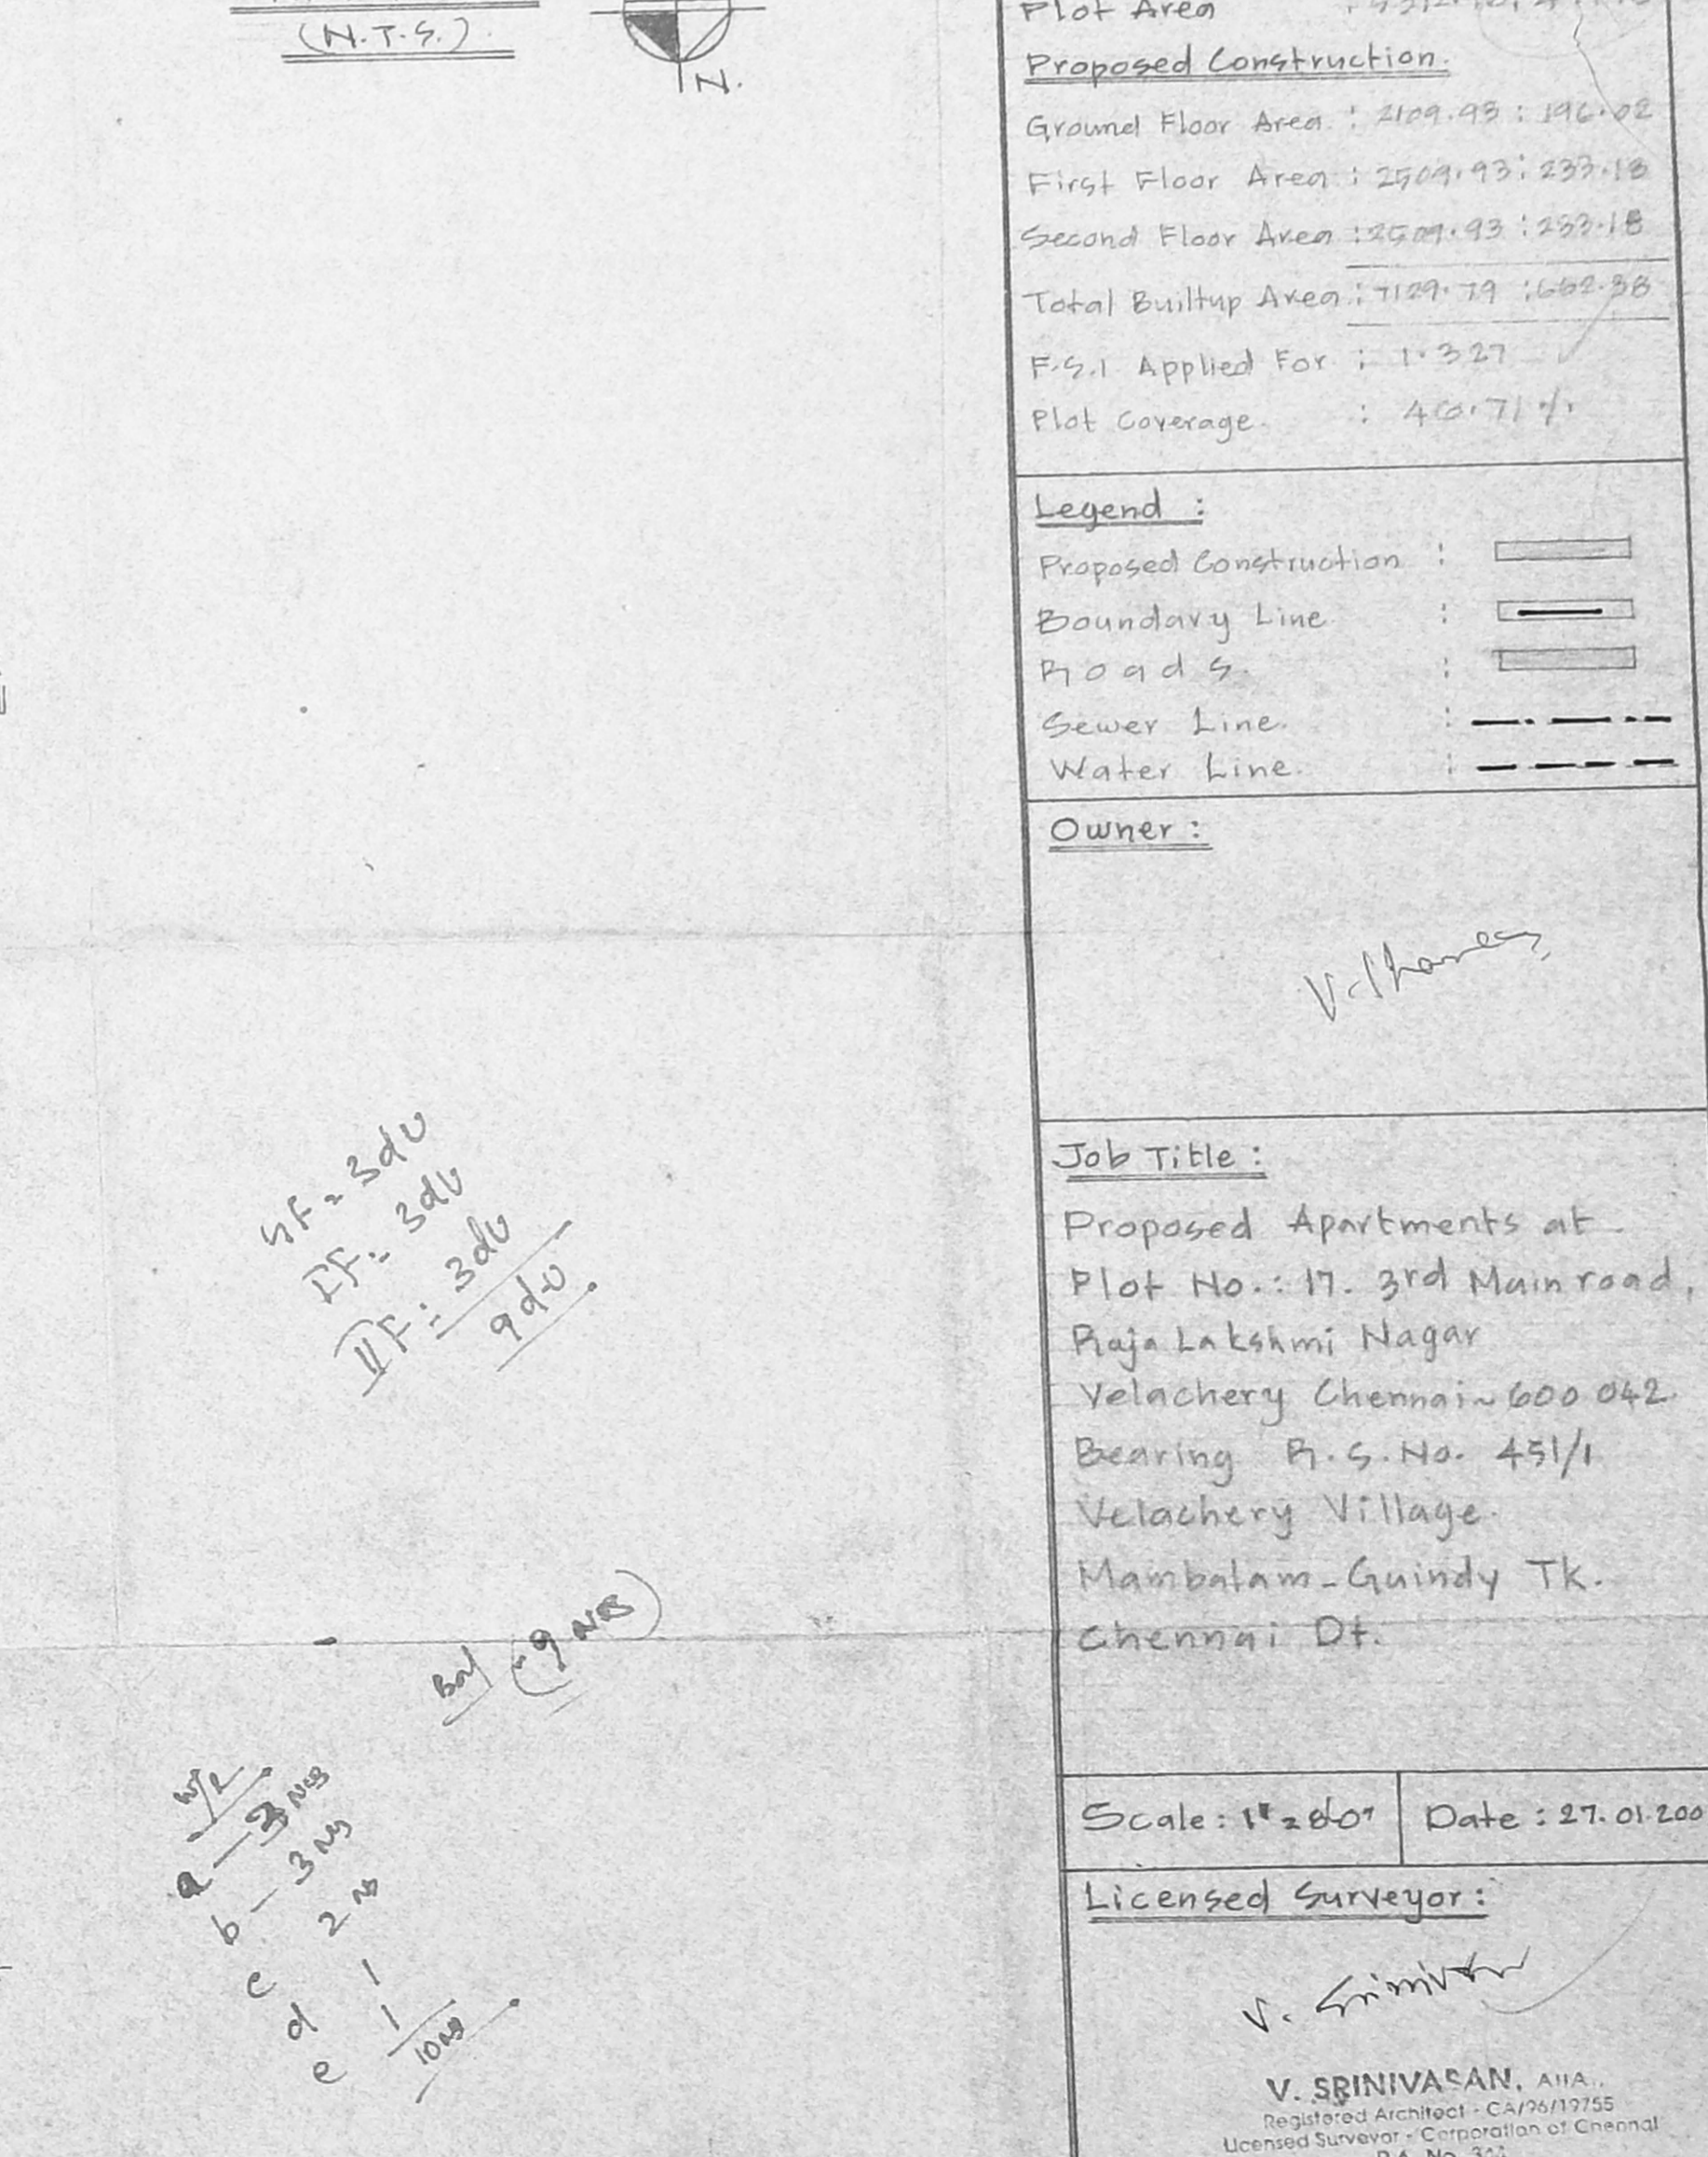 (N.T.S.)
N.
Plot Area
Proposed Construction.
Ground Floor Area : 2109.93 : 196.02
First Floor Area : 2509.93 : 233.18
Second Floor Area : 2509.93 : 233.18
Total Builtup Area : 7129.79 : 662.38
F.S.I Applied For : 1.327
Plot Coverage. : 40.71 %
Legend :
Proposed Construction :
Boundary Line :
Roads. :
Sewer Line. :
Water Line. :
Owner :
Job Title :
Proposed Apartments at.
Plot No.: 17. 3rd Main road,
Raja Lakshmi Nagar
Velachery Chennai~600 042
Bearing R.S.No. 451/1
Velachery Village.
Mambalam-Guindy Tk.
Chennai Dt.
Scale :
Date : 27.01.200
Licensed Surveyor :
V. Srinivasan
V. SRINIVASAN, AIIA.,
Registered Architect - CA/96/19755
Licensed Surveyor - Corporation of Chennai
GF = 3du
IF = 3du
IIF = 3du
9du
Bal (-9 Nos)
W/R
a - Nos
b - 3 Nos
c 2 Nos
d 1
e 1
10 Nos